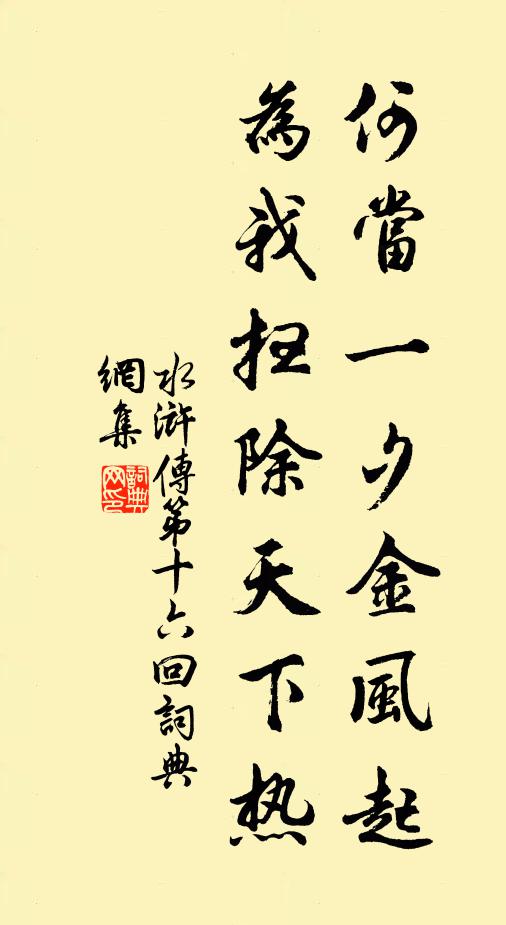 何當一夕金風起
為我扫除天下热
水滸傳第十六回詞典
網集
詞典
网印